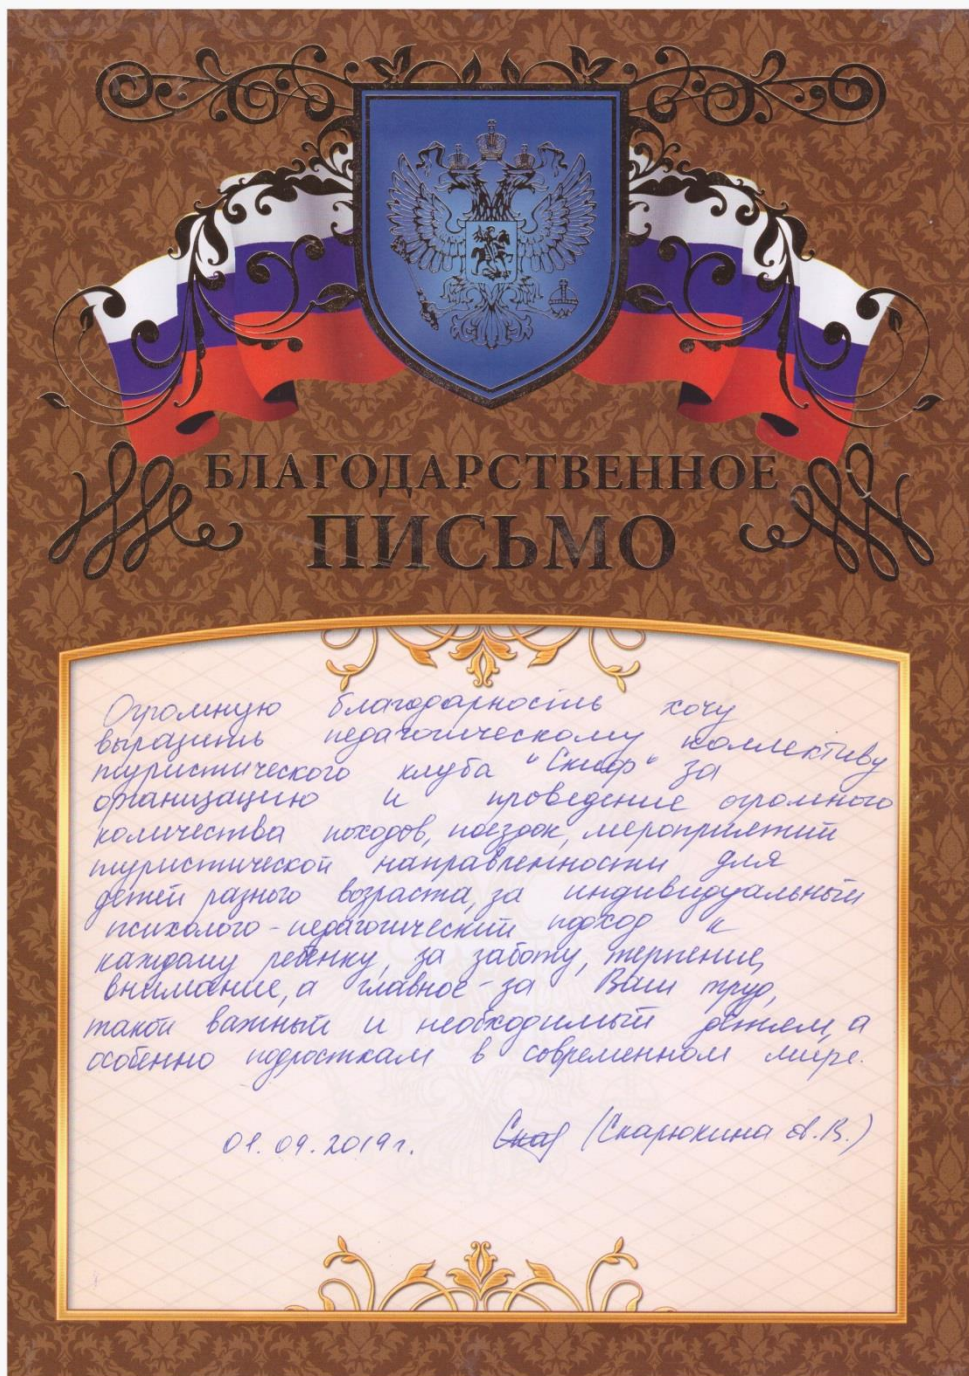 БЛАГОДАРСТВЕННОЕ
ПИСЬМО
Огромную благодарность хочу
выразить педагогическому коллективу
туристического клуба "Скиф" за
организацию и проведение огромного
количества походов, поездок, мероприятий
туристической направленности для
детей разного возраста, за индивидуальный
психолого-педагогический подход к
каждому ребенку, за заботу, терпение,
внимание, а главное - за Ваш труд,
такой важный и необходимый детям, а
особенно подросткам в современном мире.
01.09.2019г. (Скарюкина А.В.)